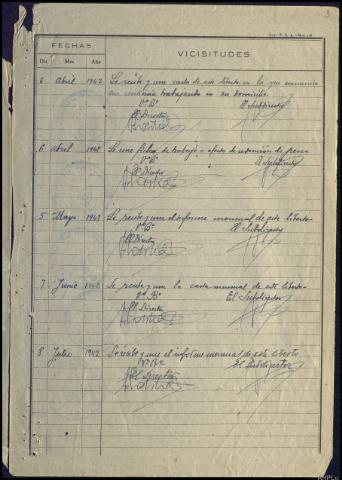 FECHAS
VICISITUDES
Día Mes Año
6 Abril 1942 Se recibe y une carta de este liberto en la que comunica
que continúa trabajando en su domicilio.
Vº Bº El Subdirector
El Director
6 Abril 1942 Se une ficha de trabajo a efecto de redención de pena
Vº Bº El Subdirector
El Director
5 Mayo 1942 Se recibe y une el informe mensual de este liberto
Vº Bº El Subdirector
El Director
7 Junio 1942 Se recibe y une la carta mensual de este liberto
Vº Bº El Subdirector
El Director
8 Julio 1942 Se recibe y une el informe mensual de este liberto
Vº Bº El Subdirector
El Director